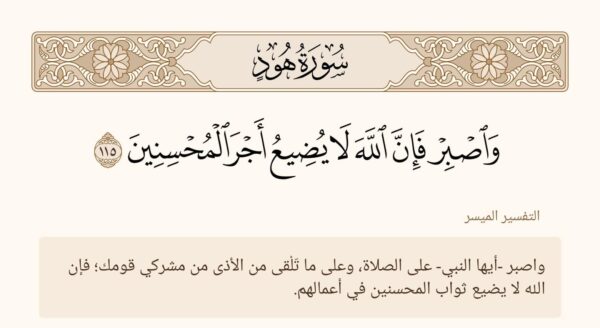 سُورَةُ هُودٍ
وَٱصۡبِرۡ فَإِنَّ ٱللَّهَ لَا يُضِيعُ أَجۡرَ ٱلۡمُحۡسِنِينَ ١١٥
التفسير الميسر
واصبر -أيها النبي- على الصلاة، وعلى ما تَلْقى من الأذى من مشركي قومك؛ فإن
الله لا يضيع ثواب المحسنين في أعمالهم.